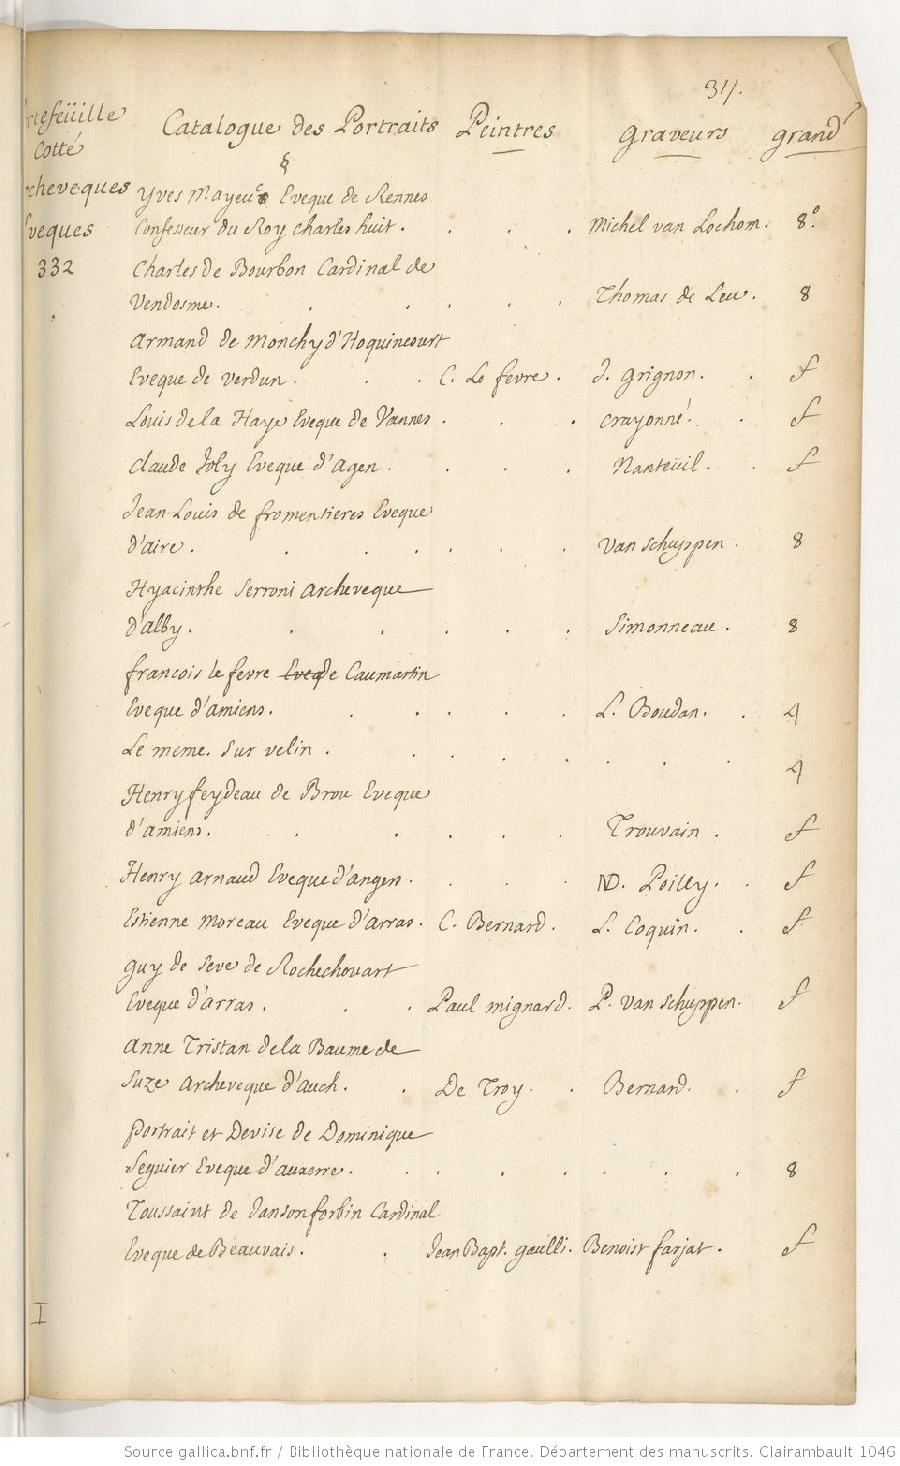 34.
rtefeüille
Cotté
rcheveques
Eveques
332
Catalogue des Portraits Peintres Graveurs grand.r
§
Yves Mayeuc Eveque de Rennes
Confesseur du Roy Charles huit. Michel van Lochom. 8.o
Charles de Bourbon Cardinal de
Vendosme. Thomas de Leu. 8
Armand de Monchy d'Hoquincourt
Eveque de Verdun. C. Le fevre. J. Grignon. f
Louis de la Haye Eveque de Vannes. crayonné. f
Claude Joly Eveque d'Agen. Nanteüil. f
Jean Louis de fromentieres Eveque
d'aire. Van Schuppen. 8
Hyacinthe Serroni Archeveque
d'alby. Simonneau. 8
francois le fevre Eveq de Caumartin
Eveque d'Amiens. L. Boudan. 4
Le meme. sur velin. 4
Henry feydeau de Brou Eveque
d'Amiens. Trouvain. f
Henry Arnaud Eveque d'angers. N. Poilly. f
Estienne Moreau Eveque d'Arras. C. Bernard. L. Coquin. f
Guy de Seve de Rochechouart
Eveque d'Arras. Paul mignard. P. van Schuppen. f
Anne Tristan de la Baume de
Suze Archeveque d'Auch. De Troy. Bernard. f
Portrait et Devise de Dominique
Seguier Eveque d'auxerre. 8
Toussaint de Janson forbin Cardinal
Eveque de Beauvais. Jean Bapt. Gaulli. Benoist farjat. f
I
Source gallica.bnf.fr / Bibliothèque nationale de France. Département des manuscrits. Clairambault 1046